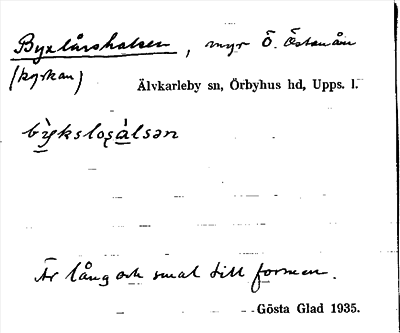 Byxlårshalsen, myr Ö. Östanån
(kyrkan)
Älvkarleby sn, Örbyhus hd, Upps. l.
bỳkslosàlsən
Är lång och smal till formen.
Gösta Glad 1935.